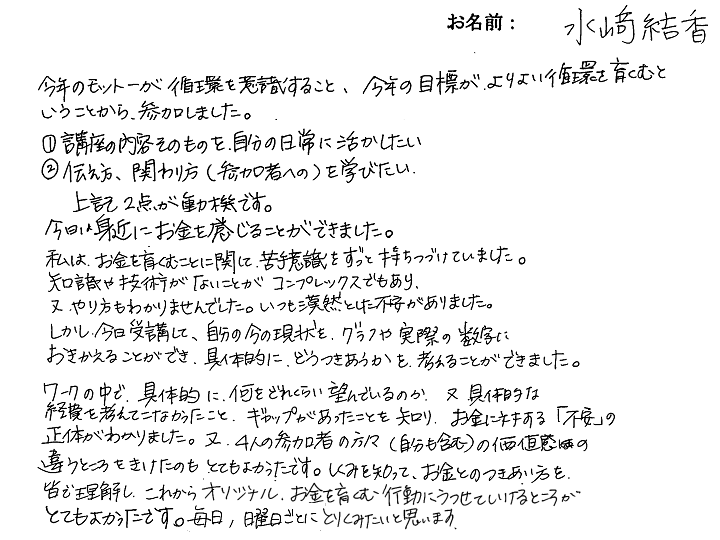 お名前： 水﨑結香
今年のモットーが循環を意識すること、今年の目標が、よりよい循環を育くむと
いうことから、参加しました。
①講座の内容そのものを、自分の日常に活かしたい
②伝え方、関わり方（参加者への）を学びたい
上記2点が動機です。
今日は身近にお金を感じることができました。
私は、お金を育くむことに関して、苦手意識をずっと持ちつづけていました。
知識や技術がないことがコンプレックスでもあり、
又、やり方もわかりませんでした。いつも漠然とした不安がありました。
しかし、今日受講して、自分の今の現状を、グラフや実際の数字に
おきかえることができ、具体的に、どうつきあうかを、考えることができました。
ワークの中で、具体的に、何をどれくらい望んでいるのか、又具体的な
経費を考えてこなかったこと、ギャップがあったことを知り、お金に対する「不安」の
正体がわかりました。又、4人の参加者の方々（自分も含む）の価値感の
違うところをきけたのもとてもよかったです。しくみを知って、お金とのつきあい方を、
皆で理解し、これからオリジナル、お金を育くむ行動にうつせていけるところが
とてもよかったです。毎日、日曜日ごとにとりくみたいと思います